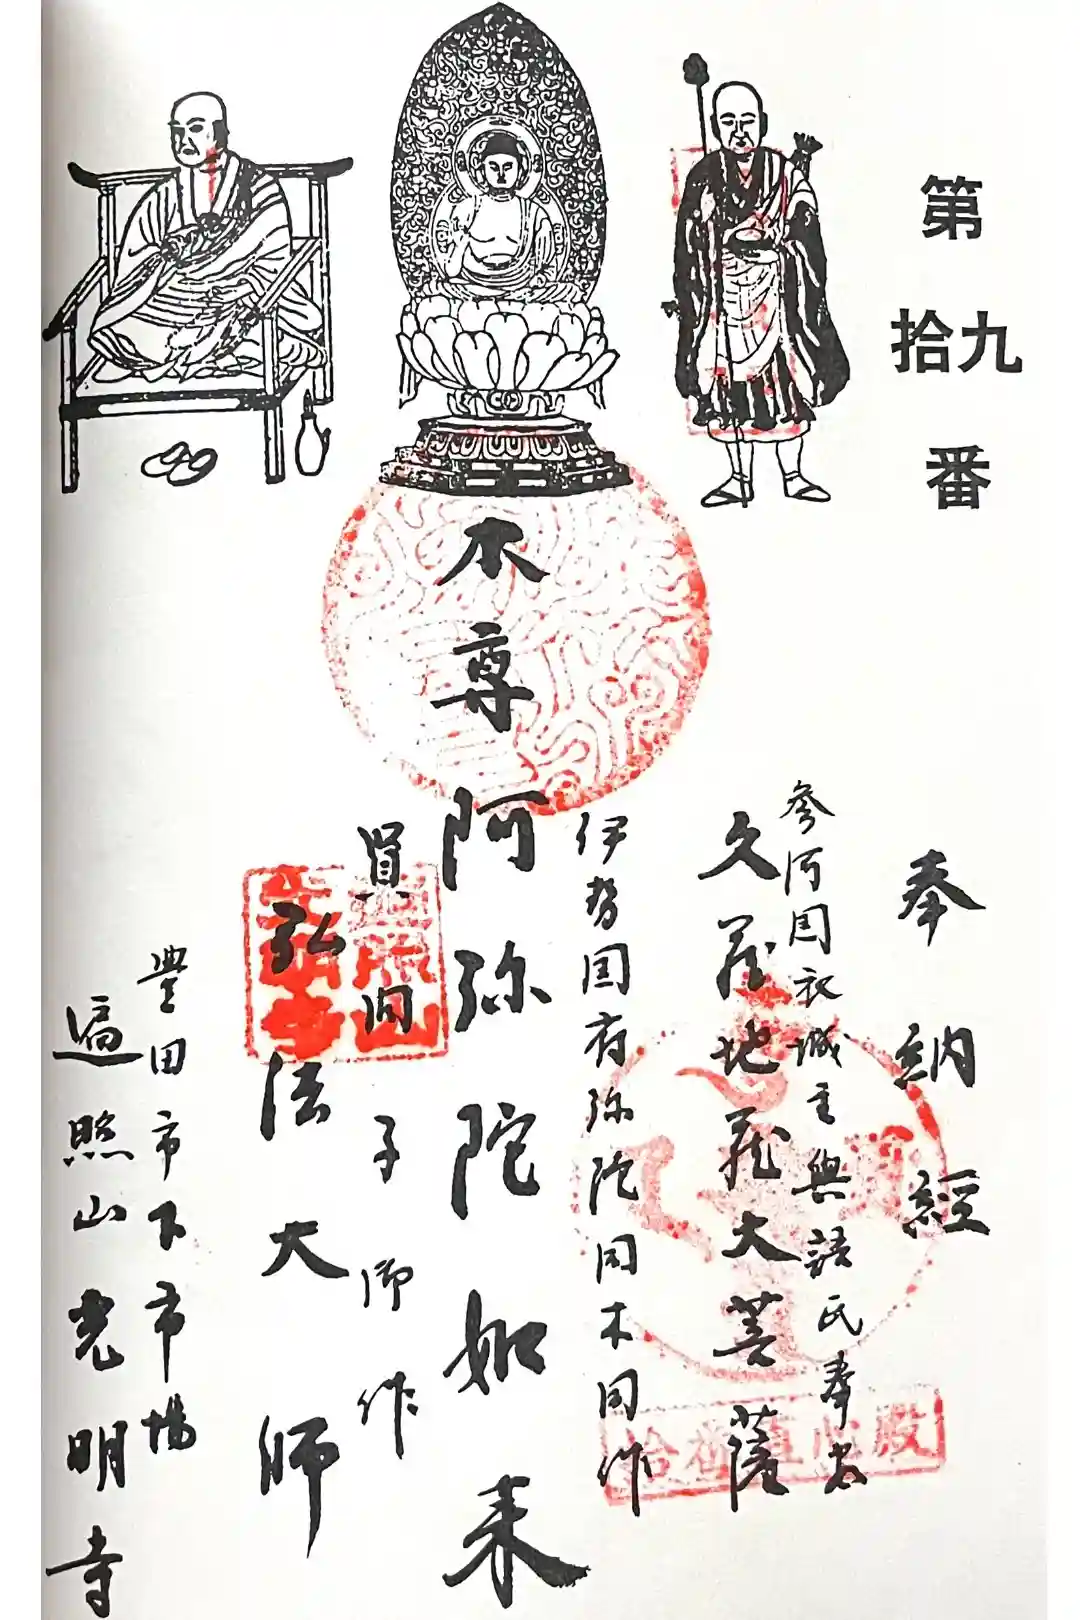 第
拾九
番
奉納経
参河国衣城主與語氏奉安
久蔵地蔵大菩薩
伊勢国府弥陀同木同作
本尊阿弥陀如来
子御作
弘法大師
豊田市下市場
遍照山光明寺